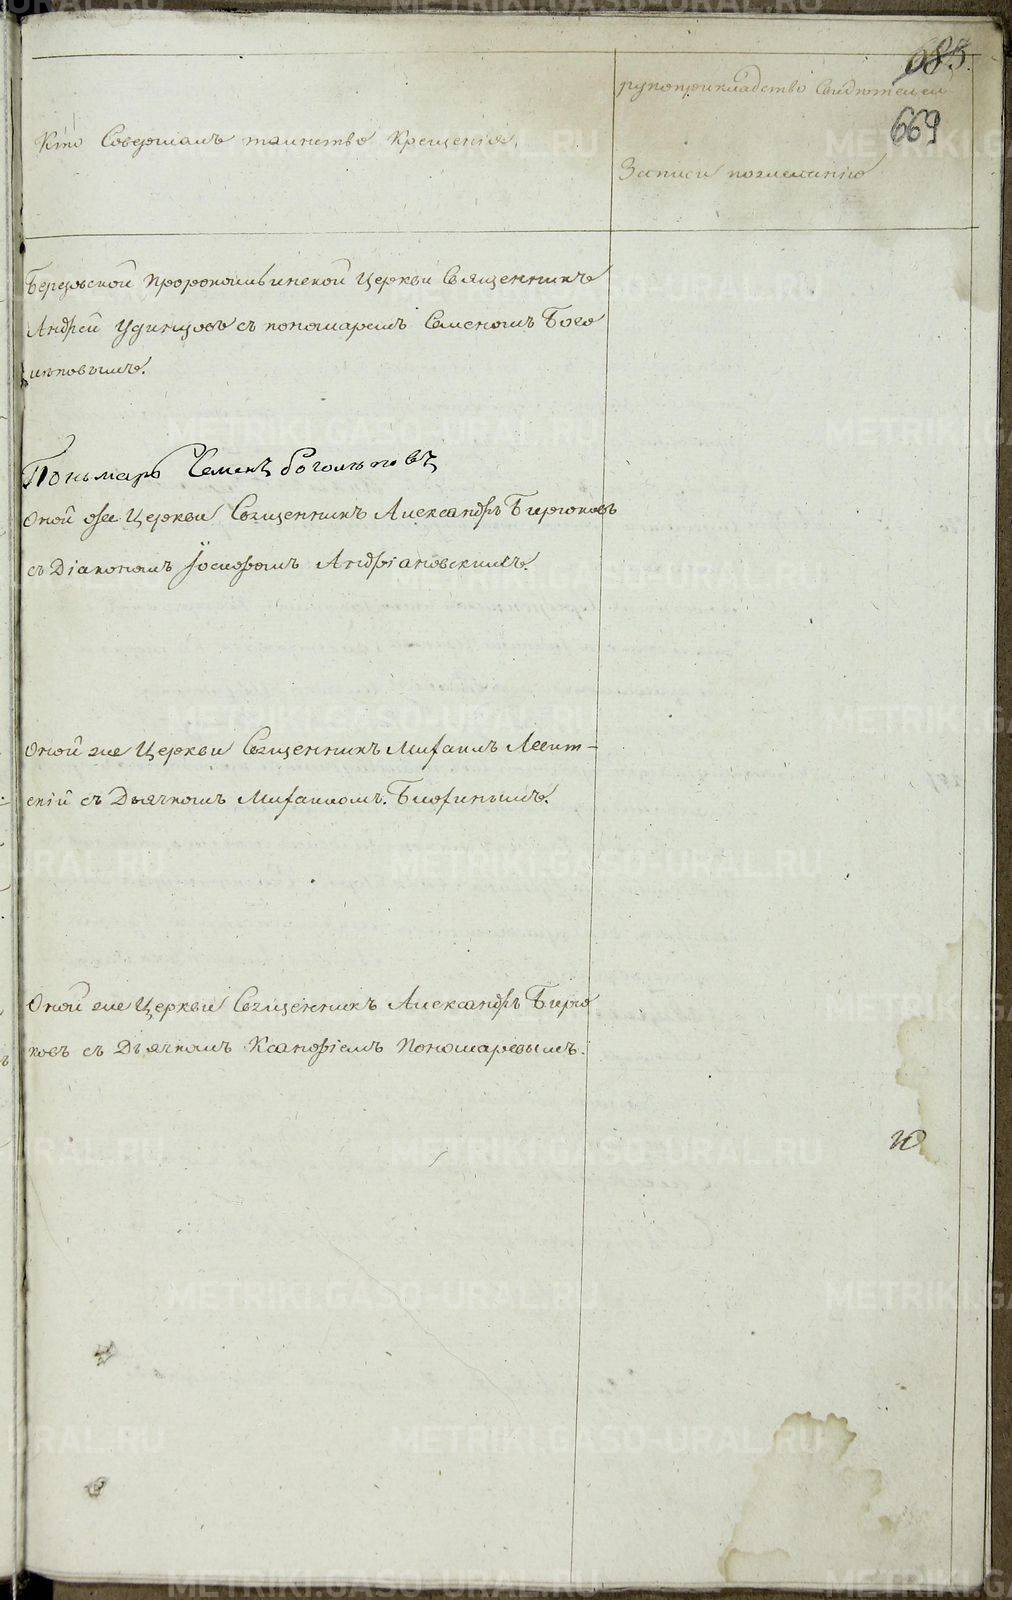 685.
669
Кто Совершалъ таинство Крещенія,
рукоприкладство Свидѣтелей
Записи пожеланію
Березовской Пророкоильинской Церкви Священникъ
Андрей Удинцовъ съ пономаремъ Семеномъ Бого
лѣповымъ.
Поньмарь Семенъ боголѣповъ
Оной же Церкви Священникъ Александръ Бирюковъ
съ Діакономъ Іосифомъ Андріановскимъ.
Оной же Церкви Священникъ Михаилъ Левит-
скій съ Дьячкомъ Михаиломъ
Оной же Церкви Священникъ Александръ Бирю
ковъ съ Дьячкомъ Ксанофіемъ Пономаревымъ.
METRIKI.GASO-URAL.RU